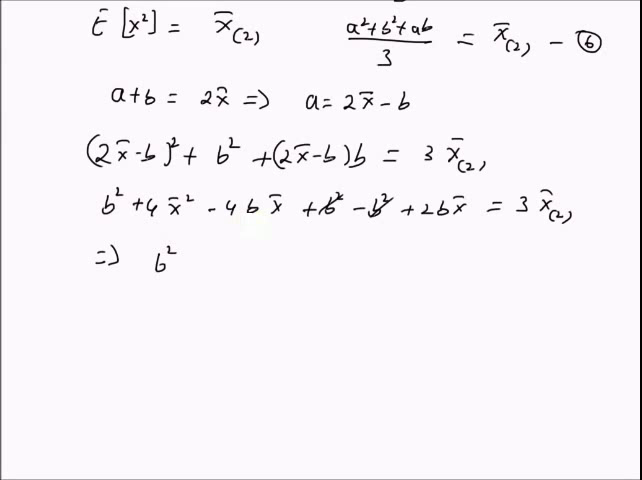 E[x²] = x̄₍₂₎   (a²+b²+ab)/3 = x̄₍₂₎ - ⑥
a+b = 2x̄ => a = 2x̄ - b
(2x̄-b)² + b² + (2x̄-b)b = 3 x̄₍₂₎
b² + 4x̄² - 4bx̄ + b² - b² + 2bx̄ = 3 x̄₍₂₎
=> b²